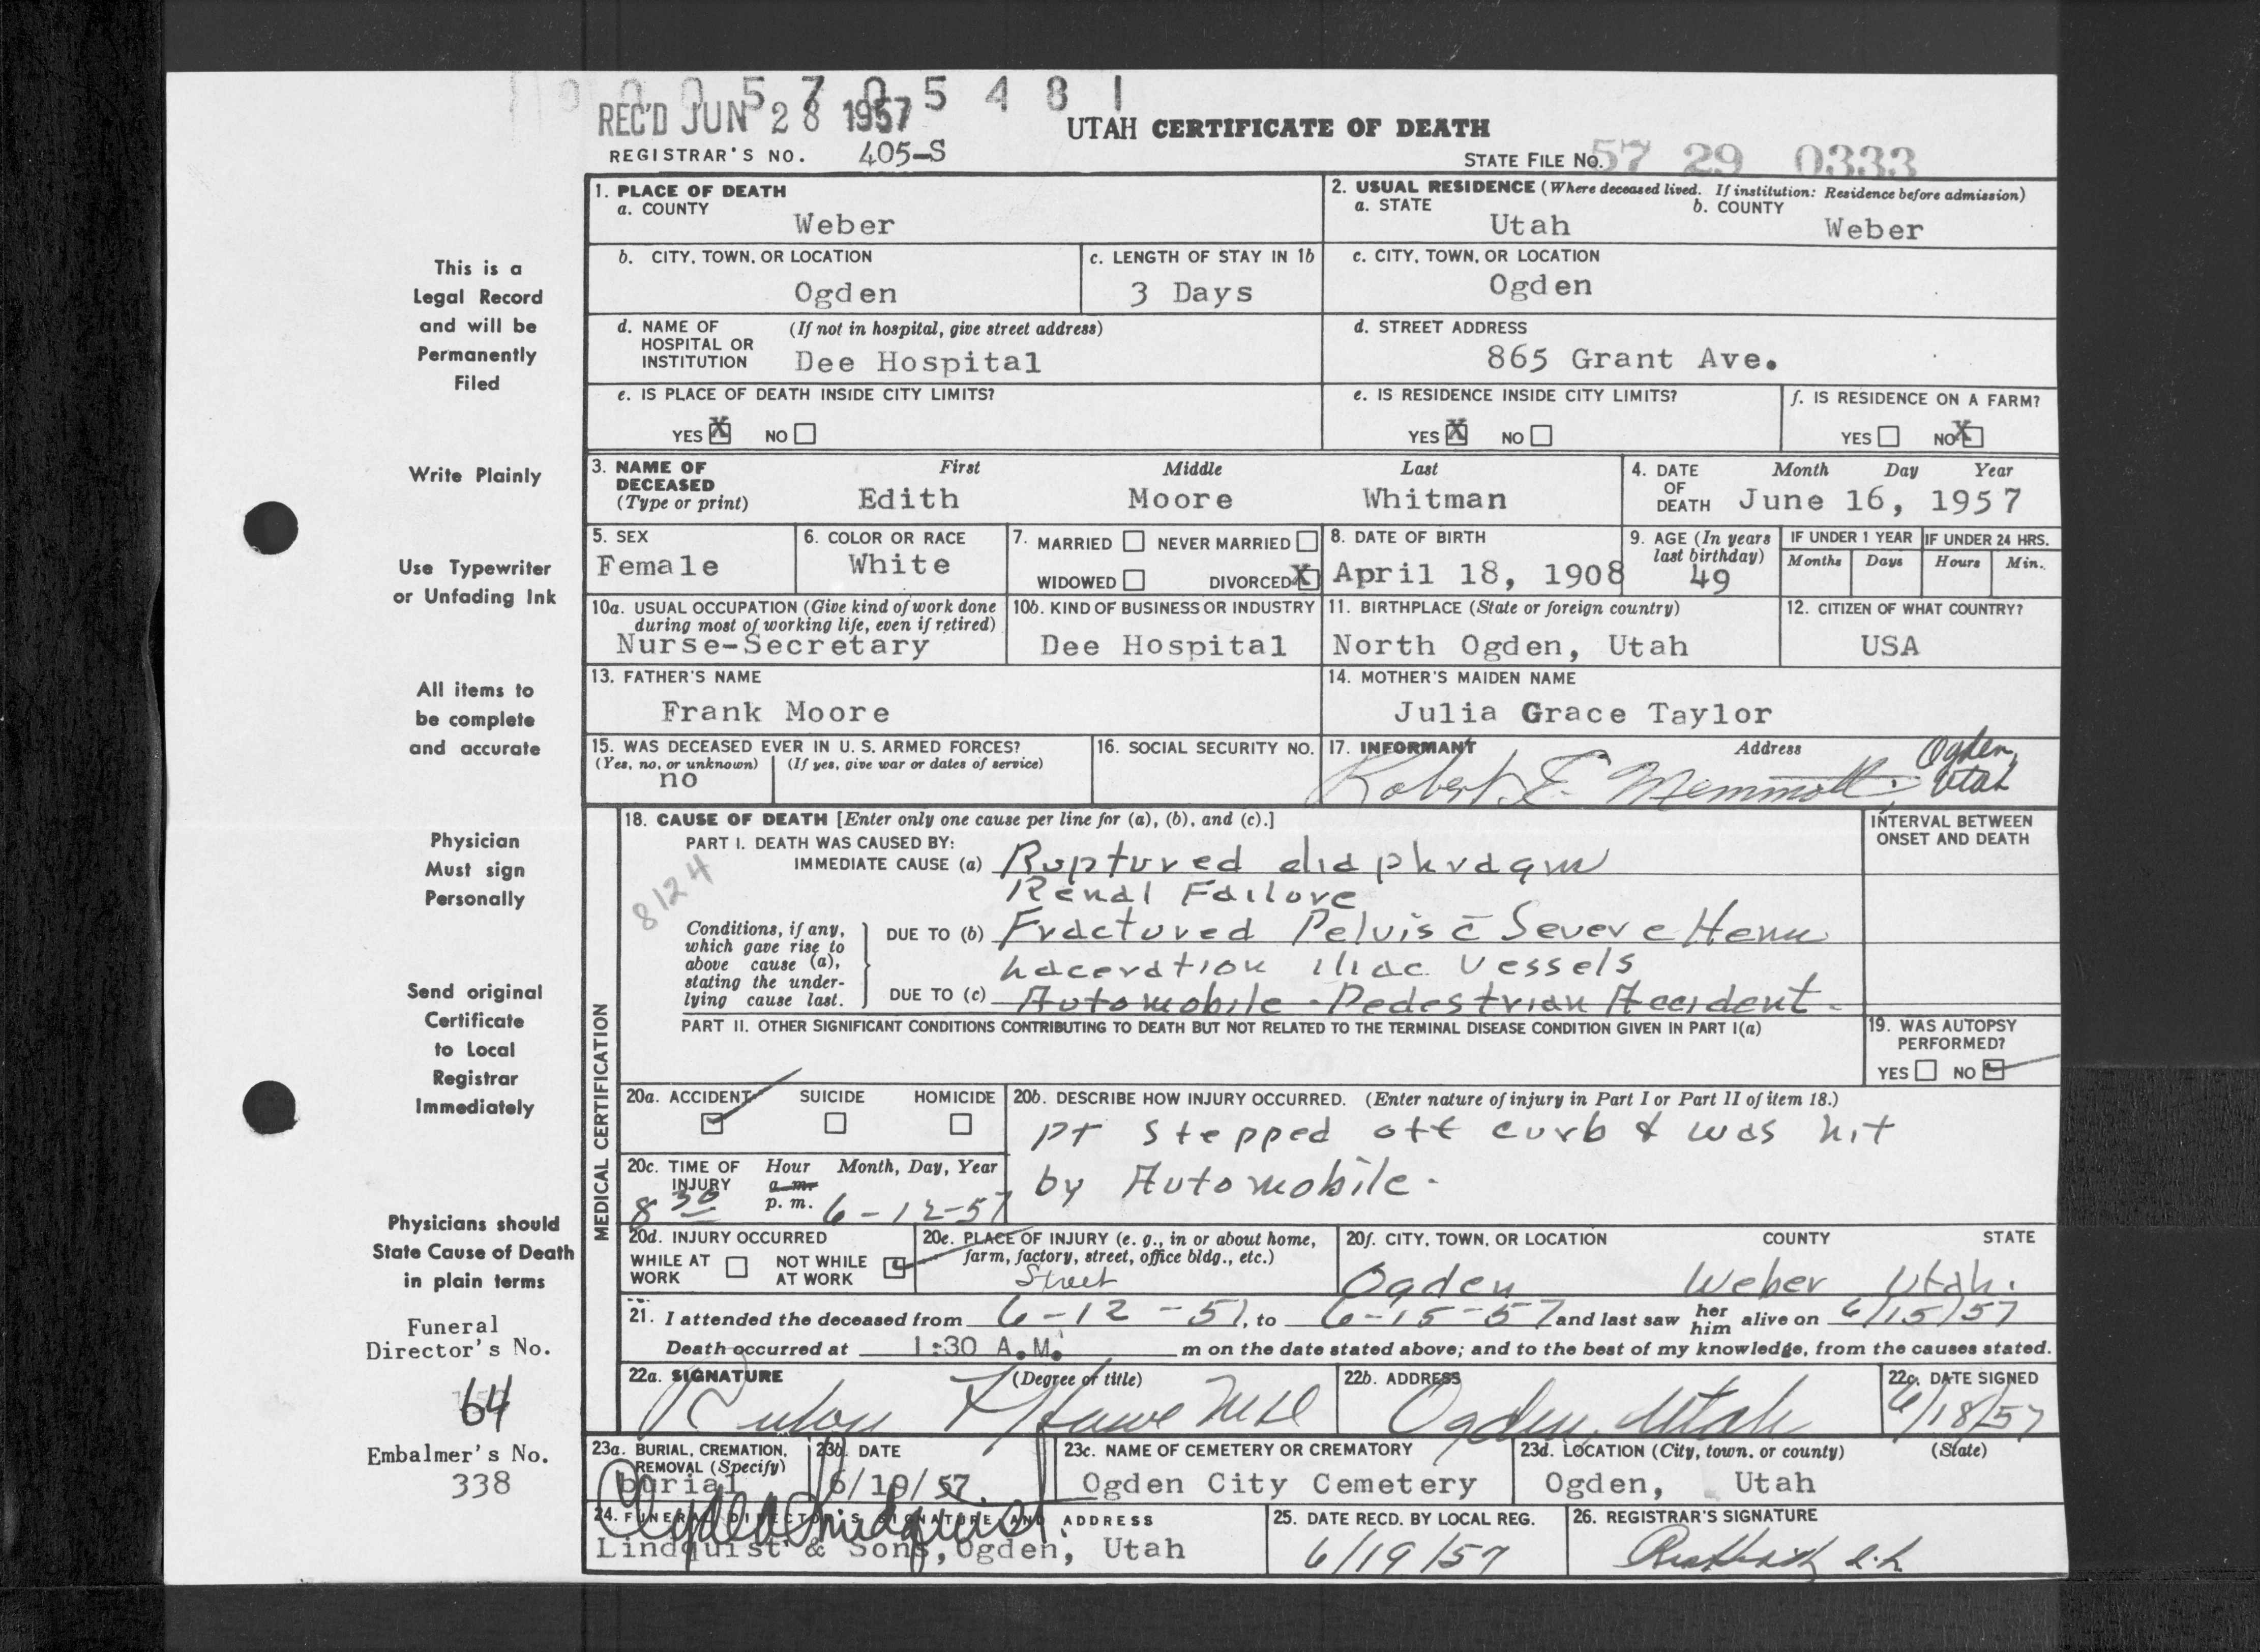 0 0 0 5 7 0 5 4 8 1
REC'D JUN 28 1957
UTAH CERTIFICATE OF DEATH
REGISTRAR'S NO. 405-S
STATE FILE NO. 57 29 0333
This is a
Legal Record
and will be
Permanently
Filed
Write Plainly
Use Typewriter
or Unfading Ink
All items to
be complete
and accurate
Physician
Must sign
Personally
Send original
Certificate
to Local
Registrar
Immediately
Physicians should
State Cause of Death
in plain terms
Funeral
Director's No.
64
Embalmer's No.
338
1. PLACE OF DEATH
a. COUNTY
Weber
2. USUAL RESIDENCE (Where deceased lived. If institution: Residence before admission)
a. STATE b. COUNTY
Utah Weber
b. CITY, TOWN, OR LOCATION
Ogden
c. LENGTH OF STAY IN 1b
3 Days
c. CITY, TOWN, OR LOCATION
Ogden
d. NAME OF (If not in hospital, give street address)
HOSPITAL OR
INSTITUTION Dee Hospital
d. STREET ADDRESS
865 Grant Ave.
e. IS PLACE OF DEATH INSIDE CITY LIMITS?
YES X NO
e. IS RESIDENCE INSIDE CITY LIMITS?
YES X NO
f. IS RESIDENCE ON A FARM?
YES NO X
3. NAME OF First Middle Last
DECEASED
(Type or print) Edith Moore Whitman
4. DATE Month Day Year
OF
DEATH June 16, 1957
5. SEX
Female
6. COLOR OR RACE
White
7. MARRIED NEVER MARRIED
WIDOWED DIVORCED X
8. DATE OF BIRTH
April 18, 1908
9. AGE (In years
last birthday)
49
IF UNDER 1 YEAR IF UNDER 24 HRS.
Months Days Hours Min.
10a. USUAL OCCUPATION (Give kind of work done
during most of working life, even if retired)
Nurse-Secretary
10b. KIND OF BUSINESS OR INDUSTRY
Dee Hospital
11. BIRTHPLACE (State or foreign country)
North Ogden, Utah
12. CITIZEN OF WHAT COUNTRY?
USA
13. FATHER'S NAME
Frank Moore
14. MOTHER'S MAIDEN NAME
Julia Grace Taylor
15. WAS DECEASED EVER IN U. S. ARMED FORCES?
(Yes, no, or unknown) (If yes, give war or dates of service)
no
16. SOCIAL SECURITY NO.
17. INFORMANT Address
Robert E. Memmott, Ogden,
Utah
MEDICAL CERTIFICATION
18. CAUSE OF DEATH [Enter only one cause per line for (a), (b), and (c).]
INTERVAL BETWEEN
ONSET AND DEATH
PART I. DEATH WAS CAUSED BY:
IMMEDIATE CAUSE (a) Ruptured diaphragm
Renal Failure
8124
Conditions, if any,
which gave rise to
above cause (a),
stating the under-
lying cause last.
DUE TO (b) Fractured Pelvis c̄ Severe Hem
Laceration iliac vessels
DUE TO (c) Automobile-Pedestrian Accident.
PART II. OTHER SIGNIFICANT CONDITIONS CONTRIBUTING TO DEATH BUT NOT RELATED TO THE TERMINAL DISEASE CONDITION GIVEN IN PART I(a)
19. WAS AUTOPSY
PERFORMED?
YES NO
20a. ACCIDENT SUICIDE HOMICIDE
20b. DESCRIBE HOW INJURY OCCURRED. (Enter nature of injury in Part I or Part II of item 18.)
pt stepped off curb & was hit
by Automobile.
20c. TIME OF Hour Month, Day, Year
INJURY a. m.
8 30 p. m. 6-12-57
20d. INJURY OCCURRED
WHILE AT WORK NOT WHILE AT WORK
20e. PLACE OF INJURY (e. g., in or about home,
farm, factory, street, office bldg., etc.)
Street
20f. CITY, TOWN, OR LOCATION COUNTY STATE
Ogden Weber Utah.
21. I attended the deceased from 6-12-57, to 6-15-57 and last saw her him alive on 6/15/57
Death occurred at 1:30 A.M. m on the date stated above; and to the best of my knowledge, from the causes stated.
22a. SIGNATURE (Degree or title)
MD
22b. ADDRESS
Ogden, Utah
22c. DATE SIGNED
6/18/57
23a. BURIAL, CREMATION,
REMOVAL (Specify)
burial
23b. DATE
6/19/57.
23c. NAME OF CEMETERY OR CREMATORY
Ogden City Cemetery
23d. LOCATION (City, town, or county) (State)
Ogden, Utah
24. FUNERAL DIRECTOR'S SIGNATURE AND ADDRESS
Lindquist & Sons, Ogden, Utah
25. DATE RECD. BY LOCAL REG.
6/19/57
26. REGISTRAR'S SIGNATURE